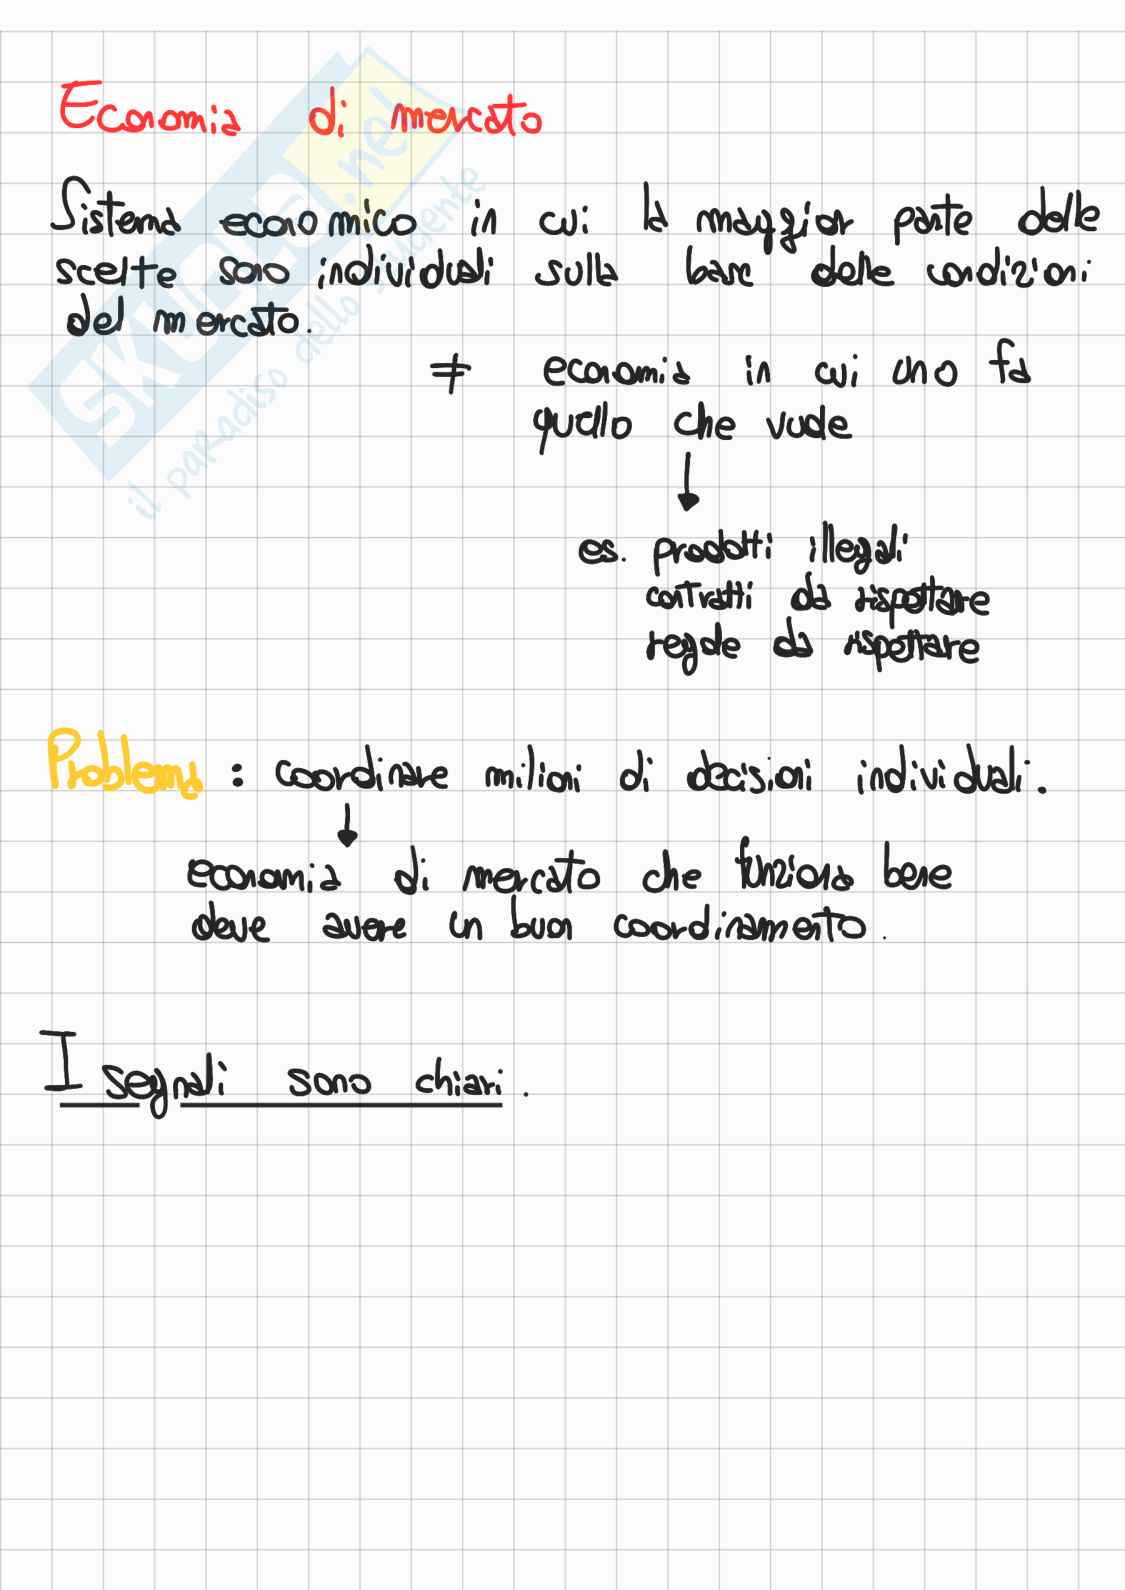 Economia di mercato
Sistema economico in cui la maggior parte delle
scelte sono individuali sulla base delle condizioni
del mercato.
≠ economia in cui uno fa
quello che vuole
↓
es. prodotti illegali
contratti da rispettare
regole da rispettare
Problema : coordinare milioni di decisioni individuali.
↓
economia di mercato che funziona bene
deve avere un buon coordinamento.
I segnali sono chiari.
SKUOLA.net
il paradiso dello studente